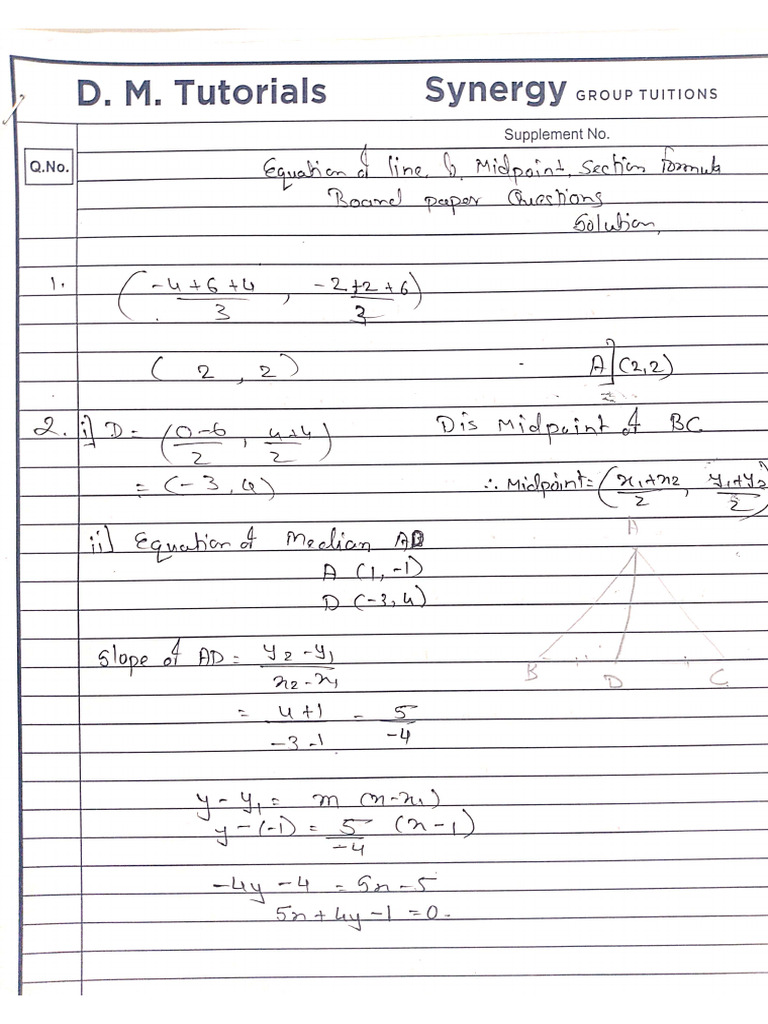 D. M. Tutorials Synergy GROUP TUITIONS
Supplement No.
Q.No.
Equation of line & Midpoint, Section formula
Board paper Questions
Solution,
1. ( (-4+6+4)/3 , (-2+2+6)/3 )
( 2 , 2 ) A] (2,2)
2. i] D = ( (0-6)/2 , (4+4)/2 ) D is Midpoint of BC
= (-3, 4) ∴ Midpoint = ( (x₁+x₂)/2 , (y₁+y₂)/2 )
ii] Equation of Median AD
A
A (1, -1)
D (-3, 4)
Slope of AD = (y₂-y₁)/(x₂-x₁)
B D C
= (4+1)/(-3-1) = 5/-4
y - y₁ = m (x-x₁)
y - (-1) = 5/-4 (x-1)
-4y - 4 = 5x - 5
5x + 4y - 1 = 0.